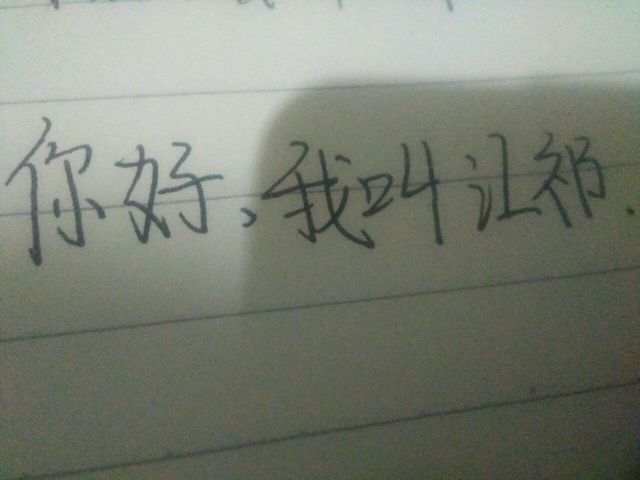 你好,我叫江祁.